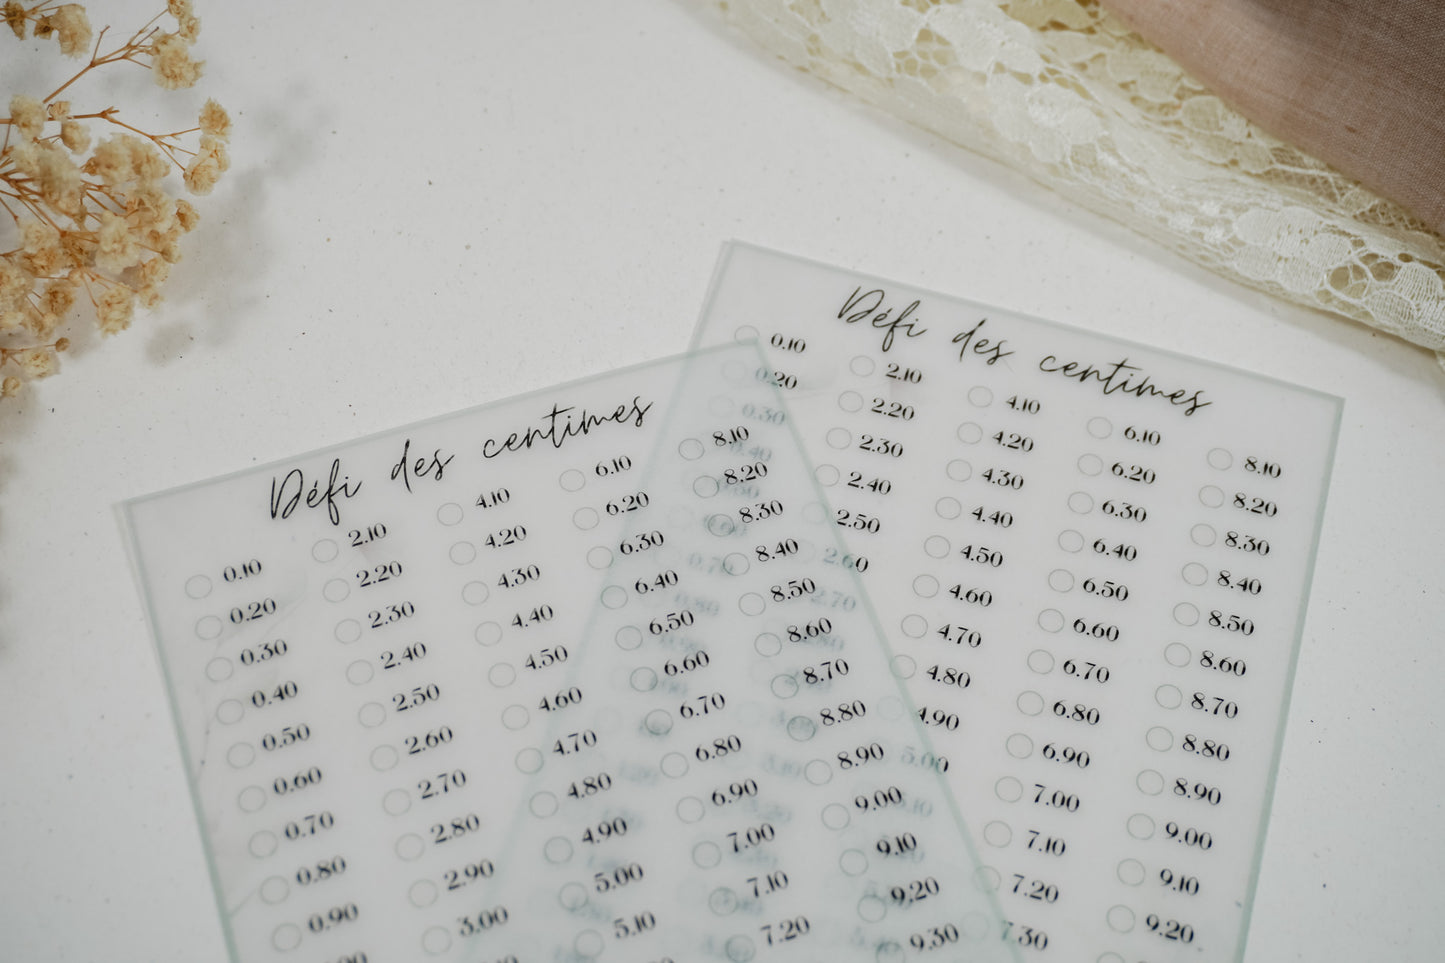 Défi des centimes
0.10 2.10 4.10 6.10 8.10
0.20 2.20 4.20 6.20 8.20
0.30 2.30 4.30 6.30 8.30
0.40 2.40 4.40 6.40 8.40
0.50 2.50 4.50 6.50 8.50
0.60 2.60 4.60 6.60 8.60
0.70 2.70 4.70 6.70 8.70
0.80 2.80 4.80 6.80 8.80
0.90 2.90 4.90 6.90 8.90
3.00 5.00 7.00 9.00
5.10 7.10 9.10
7.20 9.20
9.30
Défi des centimes
0.10 2.10 4.10 6.10 8.10
0.20 2.20 4.20 6.20 8.20
0.30 2.30 4.30 6.30 8.30
2.40 4.40 6.40 8.40
2.50 4.50 6.50 8.50
2.60 4.60 6.60 8.60
2.70 4.70 6.70 8.70
4.80 6.80 8.80
4.90 6.90 8.90
5.00 7.00 9.00
7.10 9.10
7.20 9.20
7.30